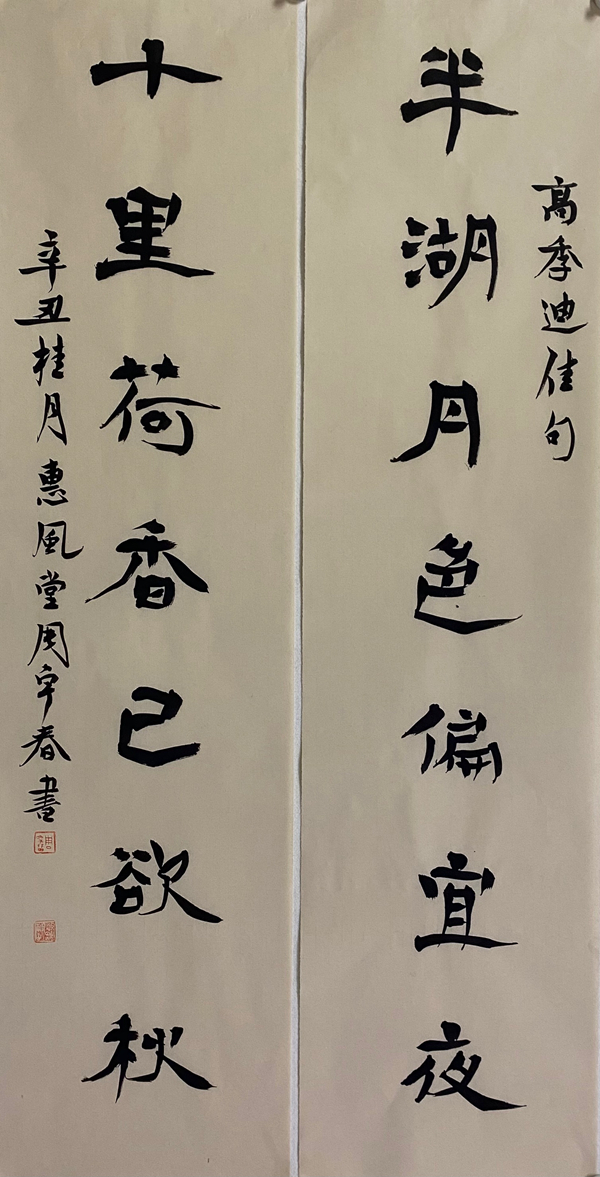 高季迪佳句
半湖月色偏宜夜
十里荷香已欲秋
辛丑桂月惠风堂周宇春書